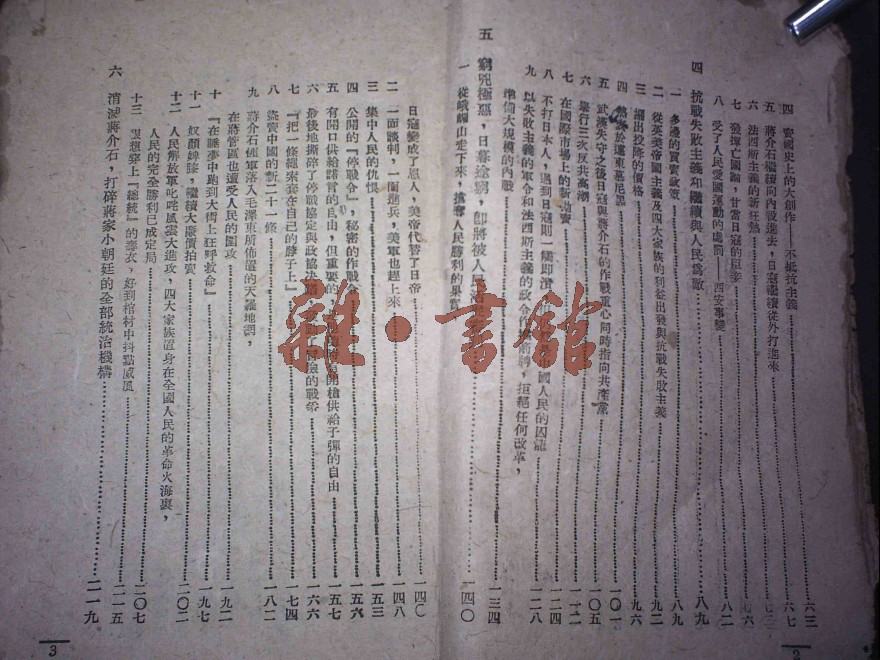 四　賣國史上的大創作——不抵抗主義……六三
五　蔣介石繼續向內戰進去，日寇繼續從外打進來……六七
六　法西斯主義的新狂熱
七　發揮亡國論，甘當日寇的……七六
八　受了人民愛國運動的處罰——西安事變……八二
四　抗戰失敗主義和繼續與人民爲敵……八九
一　多邊的買賣政策……八九
二　從英美帝國主義及四大家族的利益出發與抗戰失敗主義……九二
三　擺出投降的價格……九六
四　遠東慕尼黑……一〇一
五　武漢失守之後日寇與蔣介石的作戰重心同時指向共產黨……一〇五
六　舉行三次反共高潮……一一一
七　在國際市場上的新拍賣
八　不打日本人，遇到日寇則一觸即潰　國人民的囚籠……一二八
九　以失敗主義的軍令和法西斯主義的政令　拒絕任何改革，
準備大規模的內戰……一三四
五　窮兇極惡，日暮途窮，即將被人民消
一　從峨嵋山走下來，搶奪人民勝利的果實……一四〇
日寇變成了恩人，美帝代替了日帝……一四〇
二　一面談判，一面進兵，美軍也趕上來……一四八
三　集中人民的仇恨……一五三
四　公開的『停戰令』，秘密的作戰令……一五六
五　有開口供給諾言的自由，但重要的　開槍供給子彈的自由……一五七
六　最後地撕碎了停戰協定與政協決　的戰爭……一六六
七　『把一條繩來套在自己的脖子上』……一七四
八　盜賣中國的新二十一條……一八二
九　蔣介石進軍落入毛澤東所佈置的天羅地網，
在蔣管區也遭受人民的圍攻……一九二
十　『在睡夢中跑到大街上狂呼救命』……一九七
十一　奴顏婢膝，繼續大廉價拍賣……二〇二
十二　人民解放軍叱咤風雲大進攻，四大家族置身在全國人民的革命火海裏，
人民的完全勝利已成定局……二〇七
十三　還想穿上『總統』的壽衣，好到棺材中抖點威風……二一五
六　消滅蔣介石，打碎蔣家小朝廷的全部統治機構……二一九
2
3
雜·書館